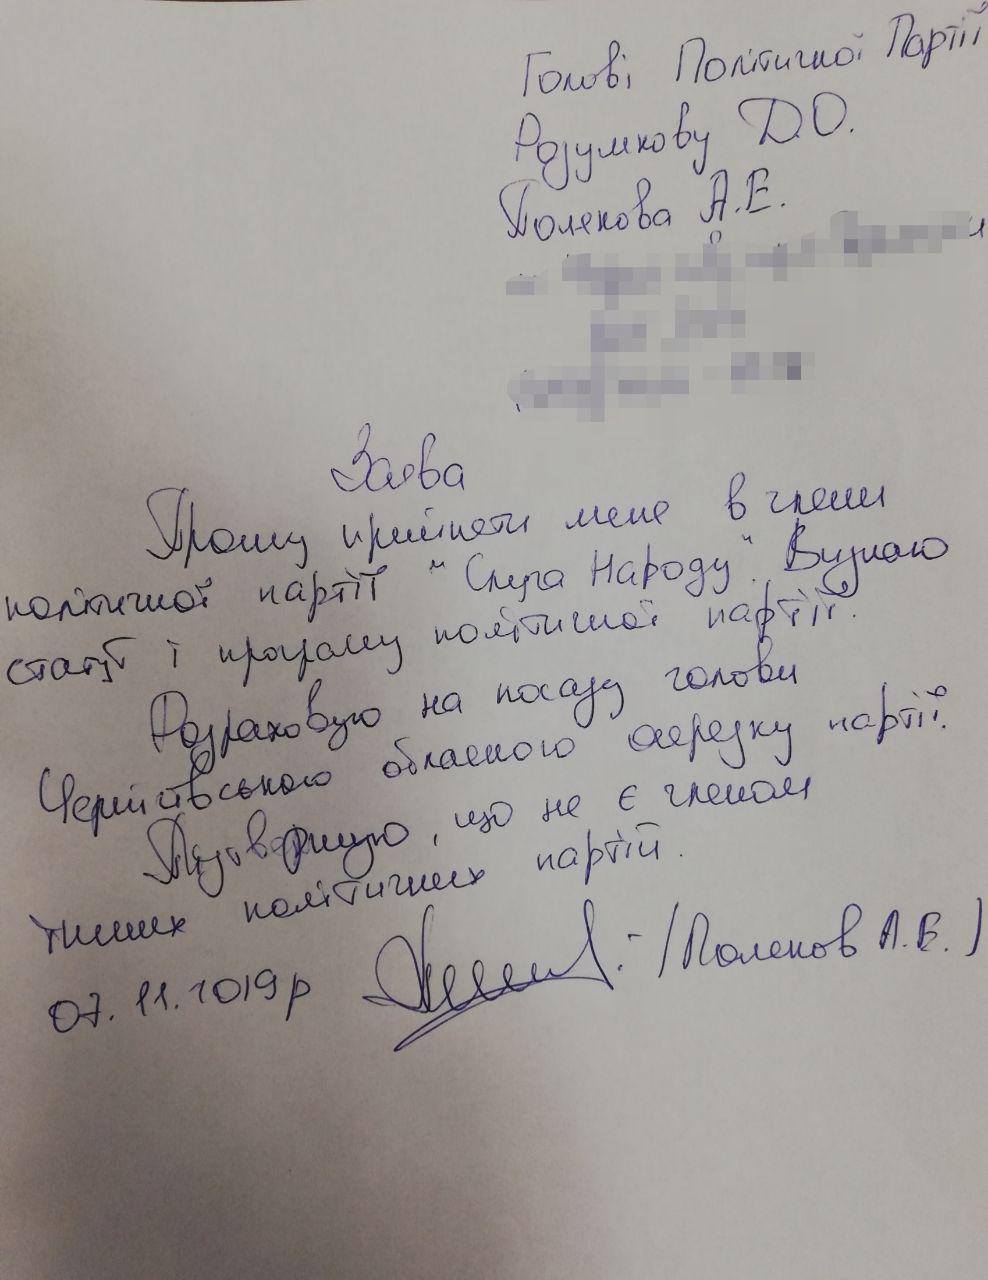 Голові Політичної Партії
Разумкову Д.О.
Полякова А.Е.
Заява
Прошу прийняти мене в члени
політичної партії "Слуга Народу". Визнаю
статут і програму політичної партії.
Розраховую на посаду голови
Чернігівського обласного осередку партії.
Підтверджую, що не є членом
інших політичних партій.
07.11.2019р (Поляков А.Е.)